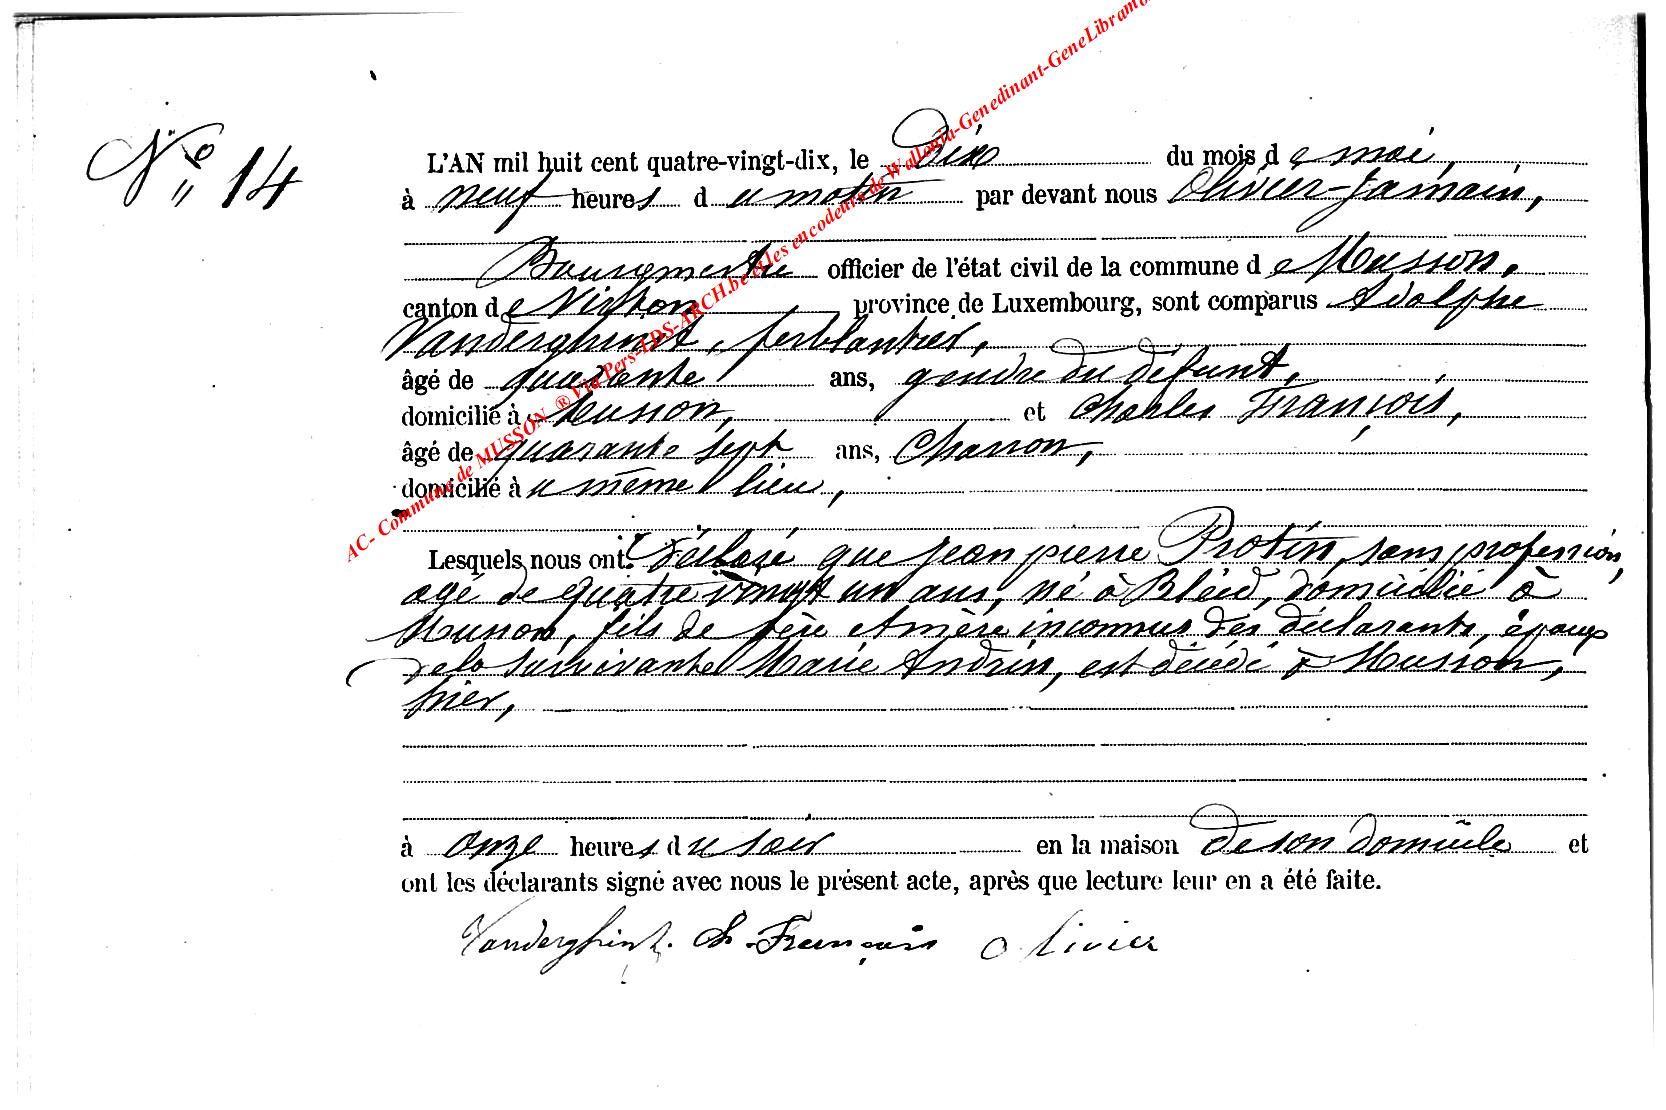 N° 14
L'AN mil huit cent quatre-vingt-dix, le Dix du mois de mai,
à neuf heures du matin par devant nous Olivier-Jamain,
Bourgmestre officier de l'état civil de la commune de Musson,
canton de Virton province de Luxembourg, sont comparus Adolphe
Vanderghinst, ferblantier,
âgé de quarante ans, gendre du défunt,
domicilié à Musson, et Charles François,
âgé de quarante sept ans, Charron,
domicilié au même lieu,
Lesquels nous ont déclaré que Jean pierre Protin, sans profession,
agé de quatre vingt un ans, né à Bleid, domicilié à
Musson, fils de père et mère inconnus des déclarants, époux
de la survivante Marie Andrin, est décédé à Musson,
hier,
à onze heures du soir en la maison de son domicile et
ont les déclarants signé avec nous le présent acte, après que lecture leur en a été faite.
Vanderghinst. Ch. François Olivier
AC- Commune de MUSSON ® Via Pers-LDS-ARCH.be & les encodeurs de Wallonia-Genedinant-GeneLibramo